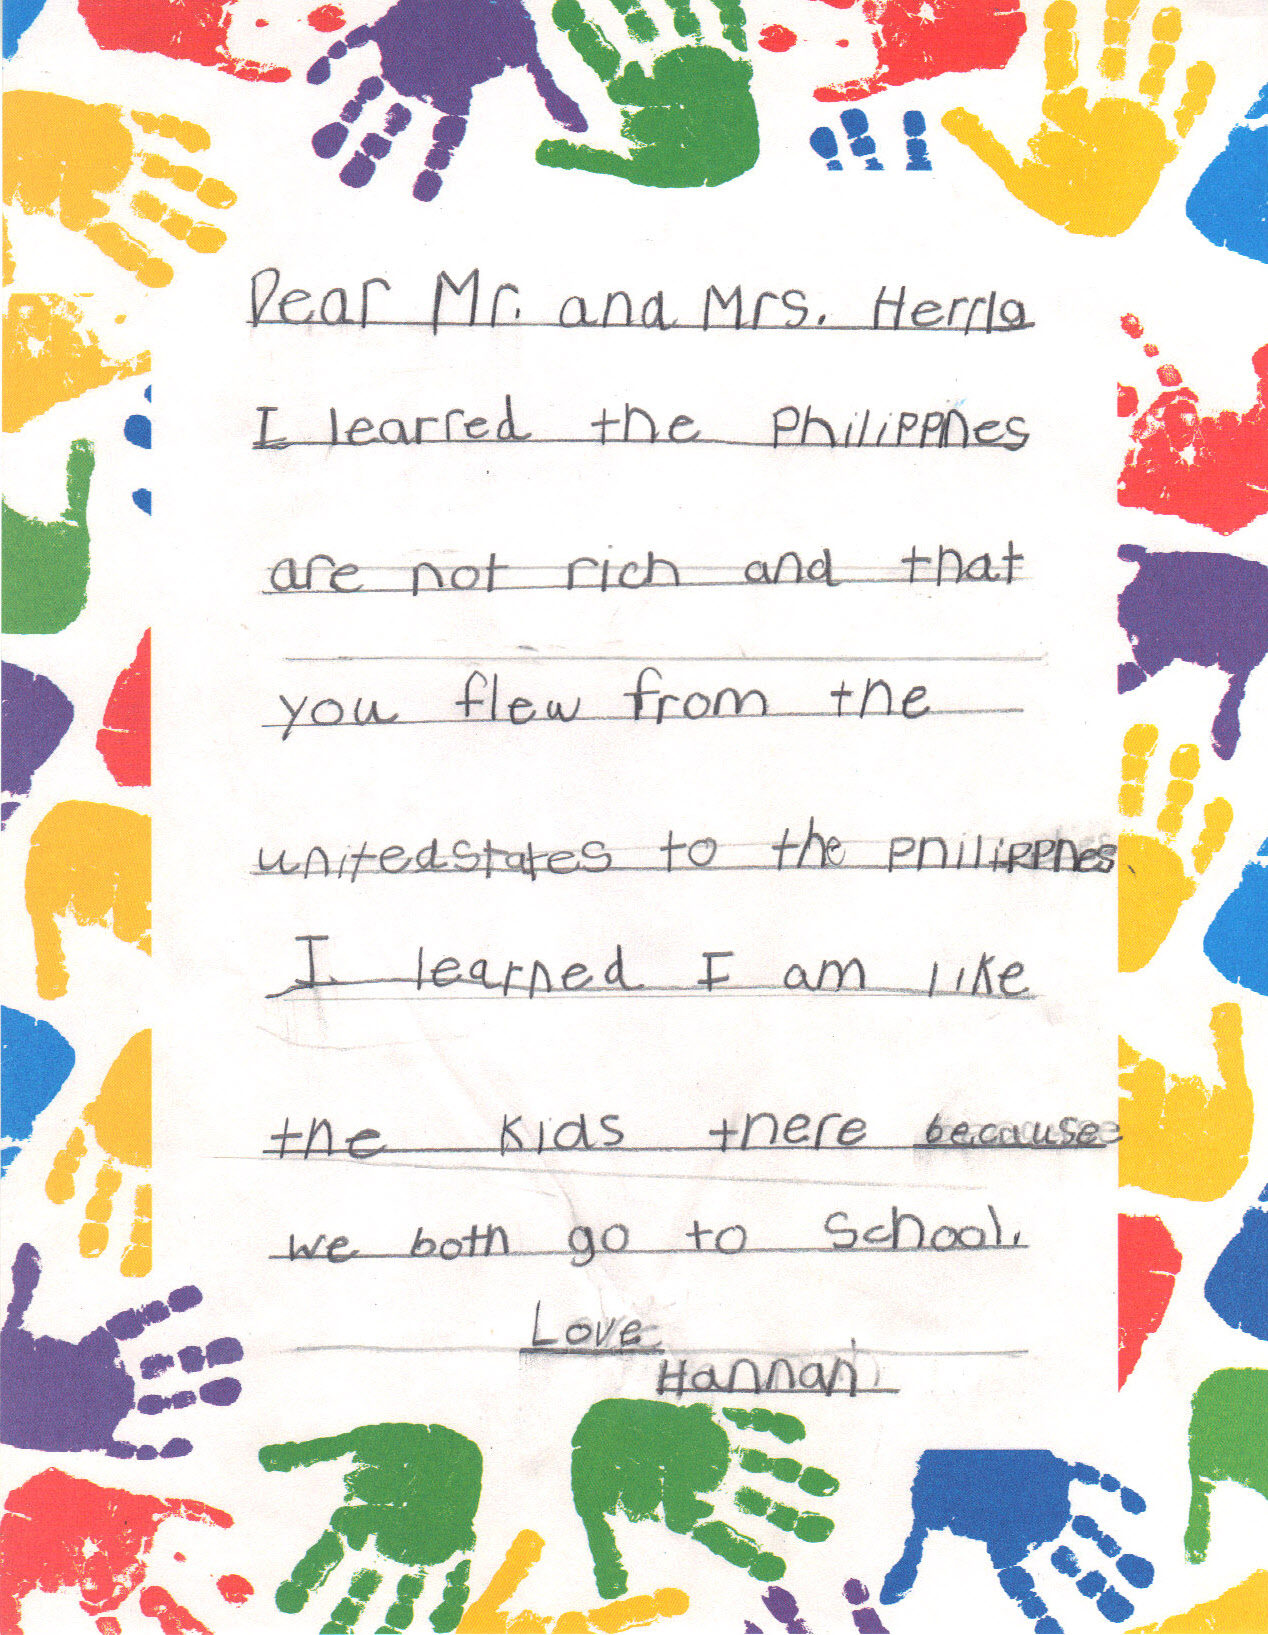 Dear Mr. and Mrs. Herrla
I learred the Philippnes
are not rich and that
you flew from the
unitedstates to the philippnes.
I learned I am like
the kids there because
we both go to School.
Love
Hannah